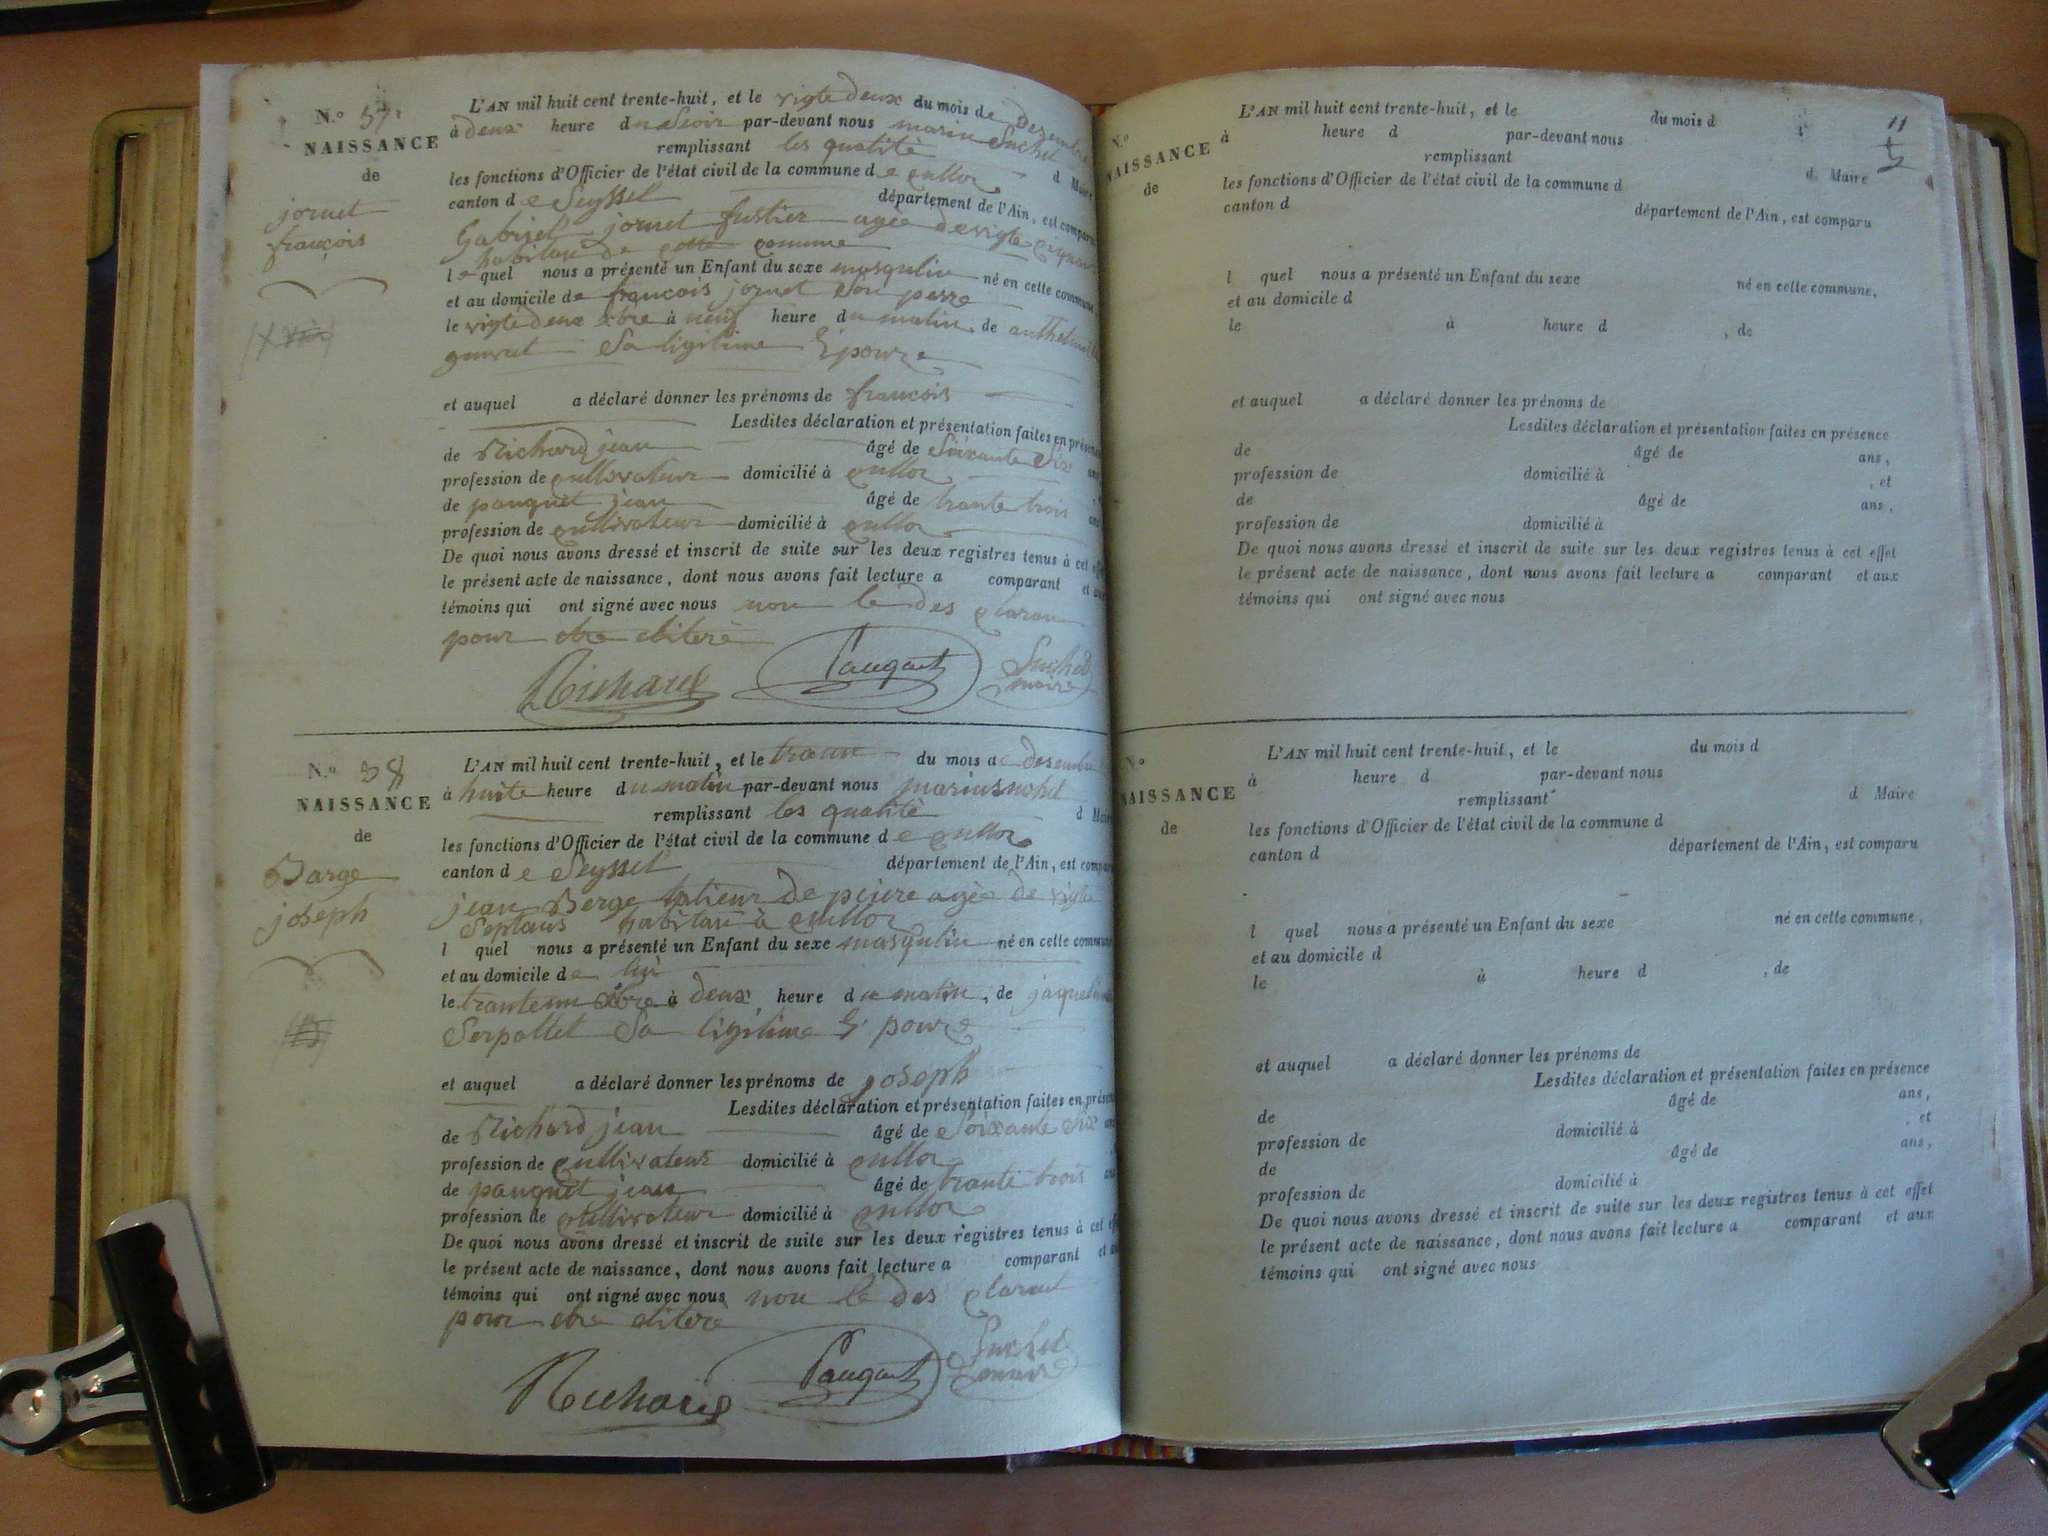 N.o 37
NAISSANCE
de
jornet
françois
L'AN mil huit cent trente-huit, et le vigtedeux du mois de Dezembre
à deux heure du Seoir par-devant nous marin Suchet
remplissant les qualité d Maire
les fonctions d'Officier de l'état civil de la commune de culloz
canton de Seyssel département de l'Ain, est comparu
Gabriel jornet fustier agée de vigte cinq
habitan de cette comune
le quel nous a présenté un Enfant du sexe masqulin né en cette commune
et au domicile de françois jornet son perre
le vigtedeux xbre à neuf heure du matin, de
Sa ligitime Epouze
et auquel a déclaré donner les prénoms de francois
Lesdites déclaration et présentation faites en présence
de Richard jean âgé de Soixante Six ans
profession de cultivateur domicilié à culloz
de pauquet jean âgé de trante trois ans
profession de cultivateur domicilié à culloz
De quoi nous avons dressé et inscrit de suite sur les deux registres tenus à cet effet
le présent acte de naissance, dont nous avons fait lecture a comparant et aux
témoins qui ont signé avec nous non le des claran
pour etre eliterè
Richard Pauquet Suchet
maire
N.o 38
NAISSANCE
de
Barge
joseph
L'AN mil huit cent trente-huit, et le du mois de desembre
à huite heure du matin par-devant nous marin suchet
remplissant les qualité d Maire
les fonctions d'Officier de l'état civil de la commune de culloz
canton de Seyssel département de l'Ain, est comparu
jean Berge talieur de piere agée de vigte
Septans habitant à culloz
l quel nous a présenté un Enfant du sexe masqulin né en cette commune
et au domicile de lui
le tranteun xbre à deux heure du matin, de
Serpollet Sa ligitime Epouze
et auquel a déclaré donner les prénoms de joseph
Lesdites déclaration et présentation faites en présence
de Richard jean âgé de Soixante Six ans
profession de cultivateur domicilié à culloz
de pauquet jean âgé de trante trois ans
profession de cultivateur domicilié à culloz
De quoi nous avons dressé et inscrit de suite sur les deux registres tenus à cet effet
le présent acte de naissance, dont nous avons fait lecture a comparant et aux
témoins qui ont signé avec nous non le des claran
pour etre eliterè
Richard Pauquet Suchet
maire
11
N.o
NAISSANCE
de
L'AN mil huit cent trente-huit, et le du mois d
à heure d par-devant nous
remplissant d Maire
les fonctions d'Officier de l'état civil de la commune d
canton d département de l'Ain, est comparu
l quel nous a présenté un Enfant du sexe né en cette commune,
et au domicile d
le à heure d , de
et auquel a déclaré donner les prénoms de
Lesdites déclaration et présentation faites en présence
de âgé de ans,
profession de domicilié à , et
de âgé de ans,
profession de domicilié à
De quoi nous avons dressé et inscrit de suite sur les deux registres tenus à cet effet
le présent acte de naissance, dont nous avons fait lecture a comparant et aux
témoins qui ont signé avec nous
N.o
NAISSANCE
de
L'AN mil huit cent trente-huit, et le du mois d
à heure d par-devant nous
remplissant d Maire
les fonctions d'Officier de l'état civil de la commune d
canton d département de l'Ain, est comparu
l quel nous a présenté un Enfant du sexe né en cette commune,
et au domicile d
le à heure d , de
et auquel a déclaré donner les prénoms de
Lesdites déclaration et présentation faites en présence
de âgé de ans,
profession de domicilié à , et
de âgé de ans,
profession de domicilié à
De quoi nous avons dressé et inscrit de suite sur les deux registres tenus à cet effet
le présent acte de naissance, dont nous avons fait lecture a comparant et aux
témoins qui ont signé avec nous